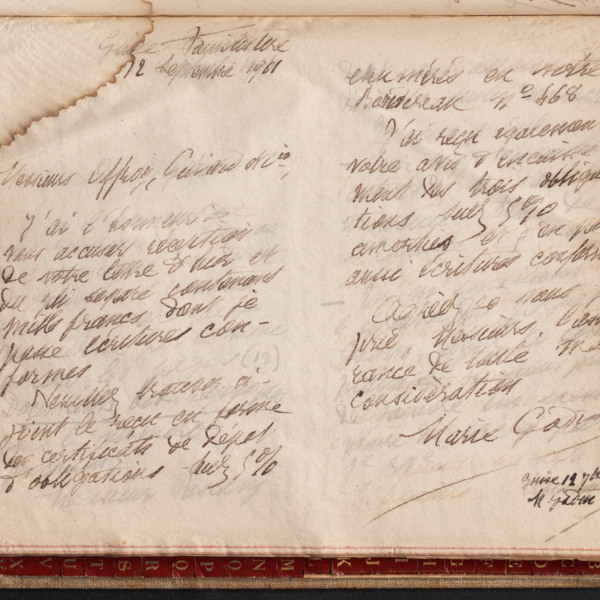 Guise Familistère
12 Septembre 1911
Messieurs Offroy, Guiard & Cie,
J'ai l'honneur de
vous accuser réception
de votre lettre d'hier et
du pli séparé contenant
mille francs dont je
passe écritures con-
formes
Veuillez trouver ci
joint le reçu en forme
des certificats de dépôt
d'obligations Sud 5%
énumérés en votre
Bordereau No 468
J'ai reçu également
votre avis d'encaisse
ment des trois obliga
tions Sud 5%
amorties et j'en pa
aussi écritures conform
Agréez je vous
prie Messieurs, l'assu
rance de toute ma
considération
Marie Godin
Guise 12 7bre
M Godin